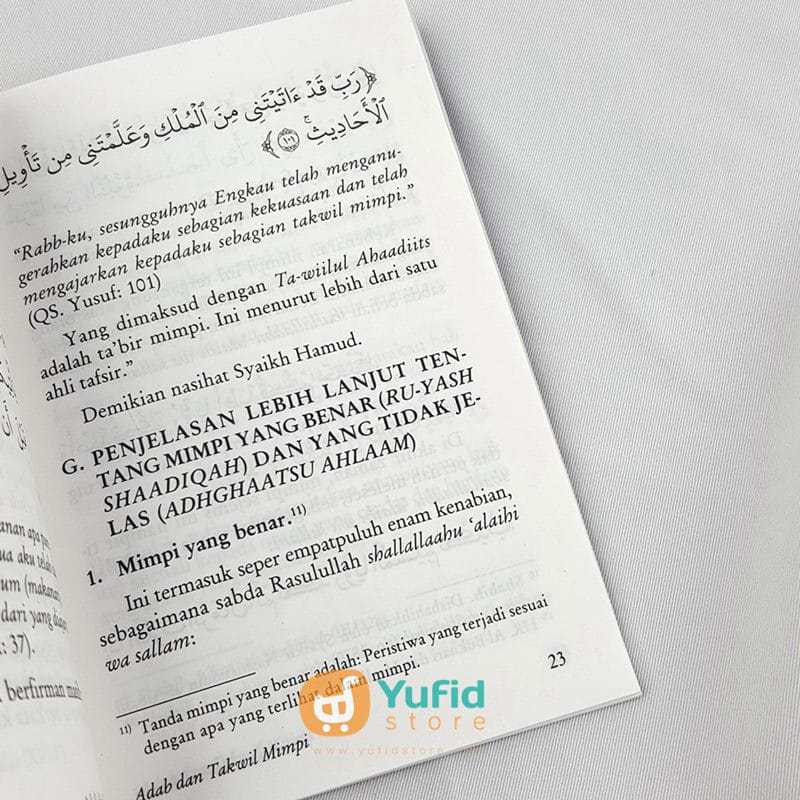 ﴿رَبِّ قَدْ ءَاتَيْتَنِى مِنَ ٱلْمُلْكِ وَعَلَّمْتَنِى مِن تَأْوِيلِ
ٱلْأَحَادِيثِ ۚ ١٠١﴾
“Rabb-ku, sesungguhnya Engkau telah menganu-
gerahkan kepadaku sebagian kekuasaan dan telah
mengajarkan kepadaku sebagian takwil mimpi.”
(QS. Yusuf: 101)
Yang dimaksud dengan Ta-wiilul Ahaadiits
adalah ta’bir mimpi. Ini menurut lebih dari satu
ahli tafsir.”
Demikian nasihat Syaikh Hamud.
G. PENJELASAN LEBIH LANJUT TEN-
TANG MIMPI YANG BENAR (RU-YASH
SHAADIQAH) DAN YANG TIDAK JE-
LAS (ADHGHAATSU AHLAAM)
1. Mimpi yang benar.11)
Ini termasuk seper empatpuluh enam kenabian,
sebagaimana sabda Rasulullah shallallaahu ‘alaihi
wa sallam:
11) Tanda mimpi yang benar adalah: Peristiwa yang terjadi sesuai
dengan apa yang terlihat dalam mimpi.
Adab dan Takwil Mimpi
23
anan apa
ua aku telah
um (makanan
dari yang
: 37).
berfirman
Yufid
store
www.yufidstore.com